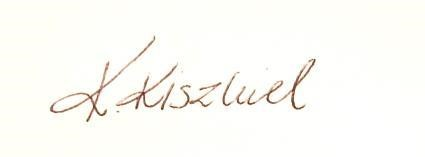 K. Kiszkiel